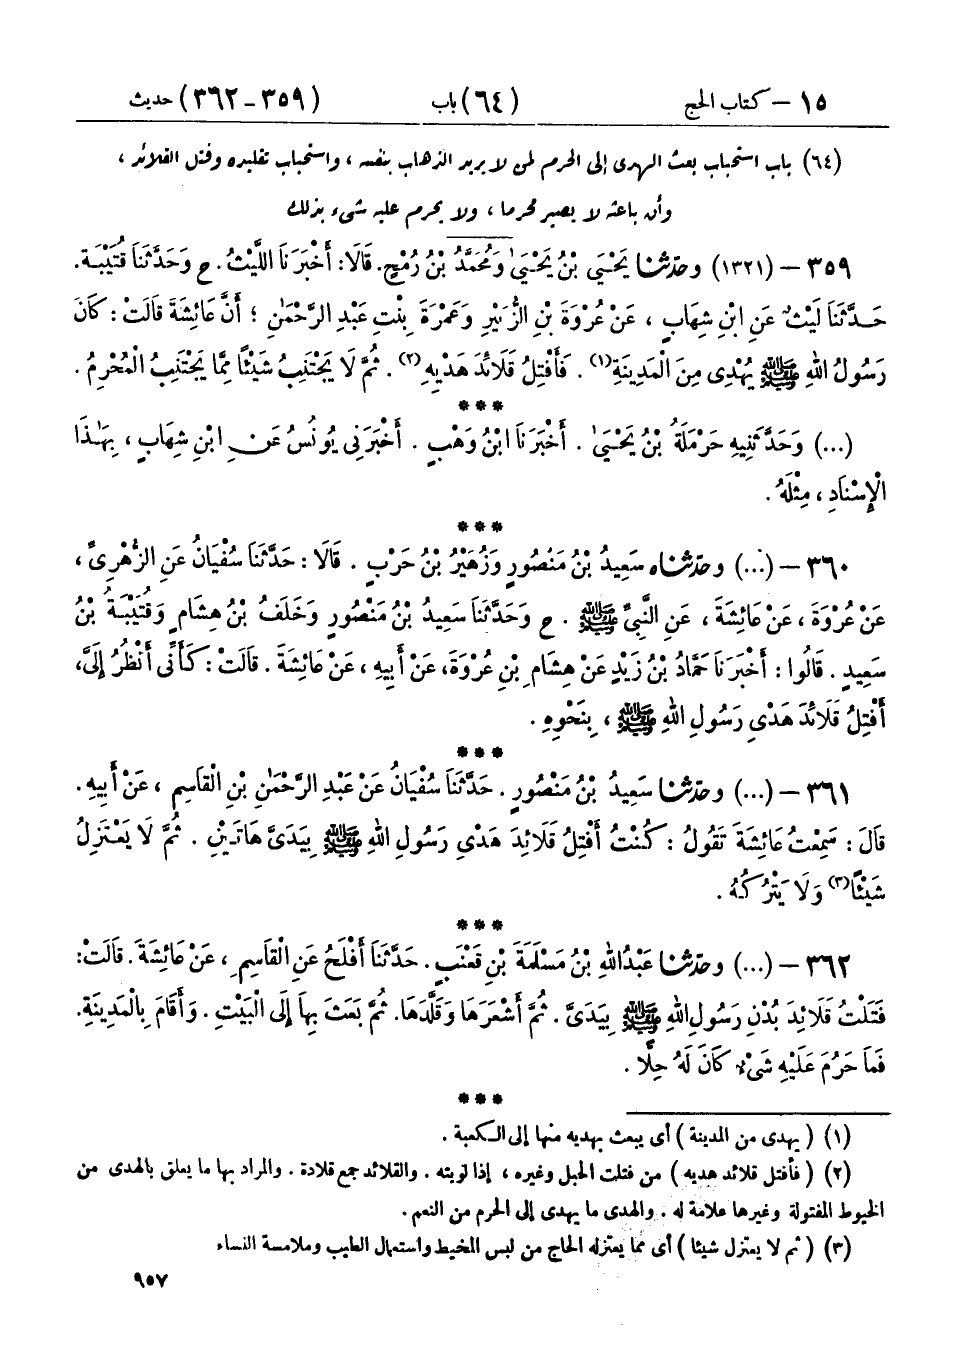 ١٥ – كتاب الحج (٦٤) باب (٣٥٩-٣٦٢) حديث
(٦٤) باب استحباب بعث الهدى إلى الحرم لمن لا يريد الذهاب بنفسه ، واستحباب تقليده وفتل القلائد ،
وأن باعثه لا يصير محرما ، ولا يحرم عليه شيء بذلك
٣٥٩ – (١٣٢١) وحدثنا يَحْيَىٰ بْنُ يَحْيَىٰ وَمُحَمَّدُ بْنُ رُمْحٍ. قَالَا: أَخْبَرَنَا اللَّيْثُ. ح وَحَدَّثَنَا قُتَيْبَةُ.
حَدَّثَنَا لَيْثٌ عَنِ ابْنِ شِهَابٍ ، عَنْ عُرْوَةَ بْنِ الزُّبَيْرِ وَعَمْرَةَ بِنْتِ عَبْدِ الرَّحْمَٰنِ ؛ أَنَّ عَائِشَةَ قَالَتْ : كَانَ
رَسُولُ اللهِ ﷺ يُهْدِى مِنَ الْمَدِينَةِ(١) . فَأَفْتِلُ قَلَائِدَ هَدْيِهِ(٢) . ثُمَّ لَا يَجْتَنِبُ شَيْئًا مِمَّا يَجْتَنِبُ الْمُحْرِمُ .
***
(...) وَحَدَّثَنِيهِ حَرْمَلَةُ بْنُ يَحْيَىٰ . أَخْبَرَنَا ابْنُ وَهْبٍ . أَخْبَرَنِى يُونُسُ عَنِ ابْنِ شِهَابٍ ، بِهَٰذَا
الْإِسْنَادِ ، مِثْلَهُ .
***
٣٦٠ – (...) وحدثناه سَعِيدُ بْنُ مَنْصُورٍ وَزُهَيْرُ بْنُ حَرْبٍ . قَالَا : حَدَّثَنَا سُفْيَانُ عَنِ الزُّهْرِىِّ ،
عَنْ عُرْوَةَ ، عَنْ عَائِشَةَ ، عَنِ النَّبِىِّ ﷺ . ح وَحَدَّثَنَا سَعِيدُ بْنُ مَنْصُورٍ وَخَلَفُ بْنُ هِشَامٍ وَقُتَيْبَةُ بْنُ
سَعِيدٍ . قَالُوا : أَخْبَرَنَا حَمَّادُ بْنُ زَيْدٍ عَنْ هِشَامِ بْنِ عُرْوَةَ، عَنْ أَبِيهِ ، عَنْ عَائِشَةَ . قَالَتْ : كَأَنِّى أَنْظُرُ إِلَىَّ،
أَفْتِلُ قَلَائِدَ هَدْىِ رَسُولِ اللهِ ﷺ ، بِنَحْوِهِ .
***
٣٦١ – (...) وحدثنا سَعِيدُ بْنُ مَنْصُورٍ . حَدَّثَنَا سُفْيَانُ عَنْ عَبْدِ الرَّحْمَٰنِ بْنِ الْقَاسِمِ ، عَنْ أَبِيهِ .
قَالَ : سَمِعْتُ عَائِشَةَ تَقُولُ : كُنْتُ أَفْتِلُ قَلَائِدَ هَدْىِ رَسُولِ اللهِ ﷺ بِيَدَىَّ هَاتَيْنِ . ثُمَّ لَا يَعْتَزِلُ
شَيْئًا(٣) وَلَا يَتْرُكُهُ .
***
٣٦٢ – (...) وحدثنا عَبْدُ اللهِ بْنُ مَسْلَمَةَ بْنِ قَعْنَبٍ . حَدَّثَنَا أَفْلَحُ عَنِ الْقَاسِمِ ، عَنْ عَائِشَةَ . قَالَتْ:
فَتَلْتُ قَلَائِدَ بُدْنِ رَسُولِ اللهِ ﷺ بِيَدَىَّ . ثُمَّ أَشْعَرَهَا وَقَلَّدَهَا. ثُمَّ بَعَثَ بِهَا إِلَى الْبَيْتِ . وَأَقَامَ بِالْمَدِينَةِ.
فَمَا حَرُمَ عَلَيْهِ شَىْءٌ كَانَ لَهُ حِلًّا .
***
(١) ( يهدى من المدينة ) أى يبعث بهديه منها إلى الكعبة .
(٢) ( فأفتل قلائد هديه ) من فتلت الحبل وغيره ، إذا لويته . والقلائد جمع قلادة . والمراد بها ما يعلق بالهدى من
الخيوط المفتولة وغيرها علامة له . والهدى ما يهدى إلى الحرم من النعم .
(٣) ( ثم لا يعتزل شيئا ) أى مما يعتزله الحاج من لبس المخيط واستعمال الطيب وملامسة النساء
٩٥٧